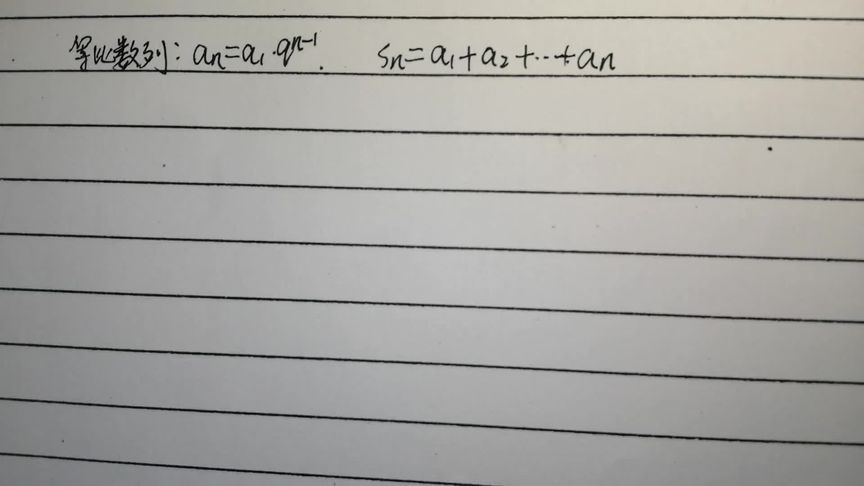 等比数列: aₙ=a₁·qⁿ⁻¹. Sₙ=a₁+a₂+···+aₙ